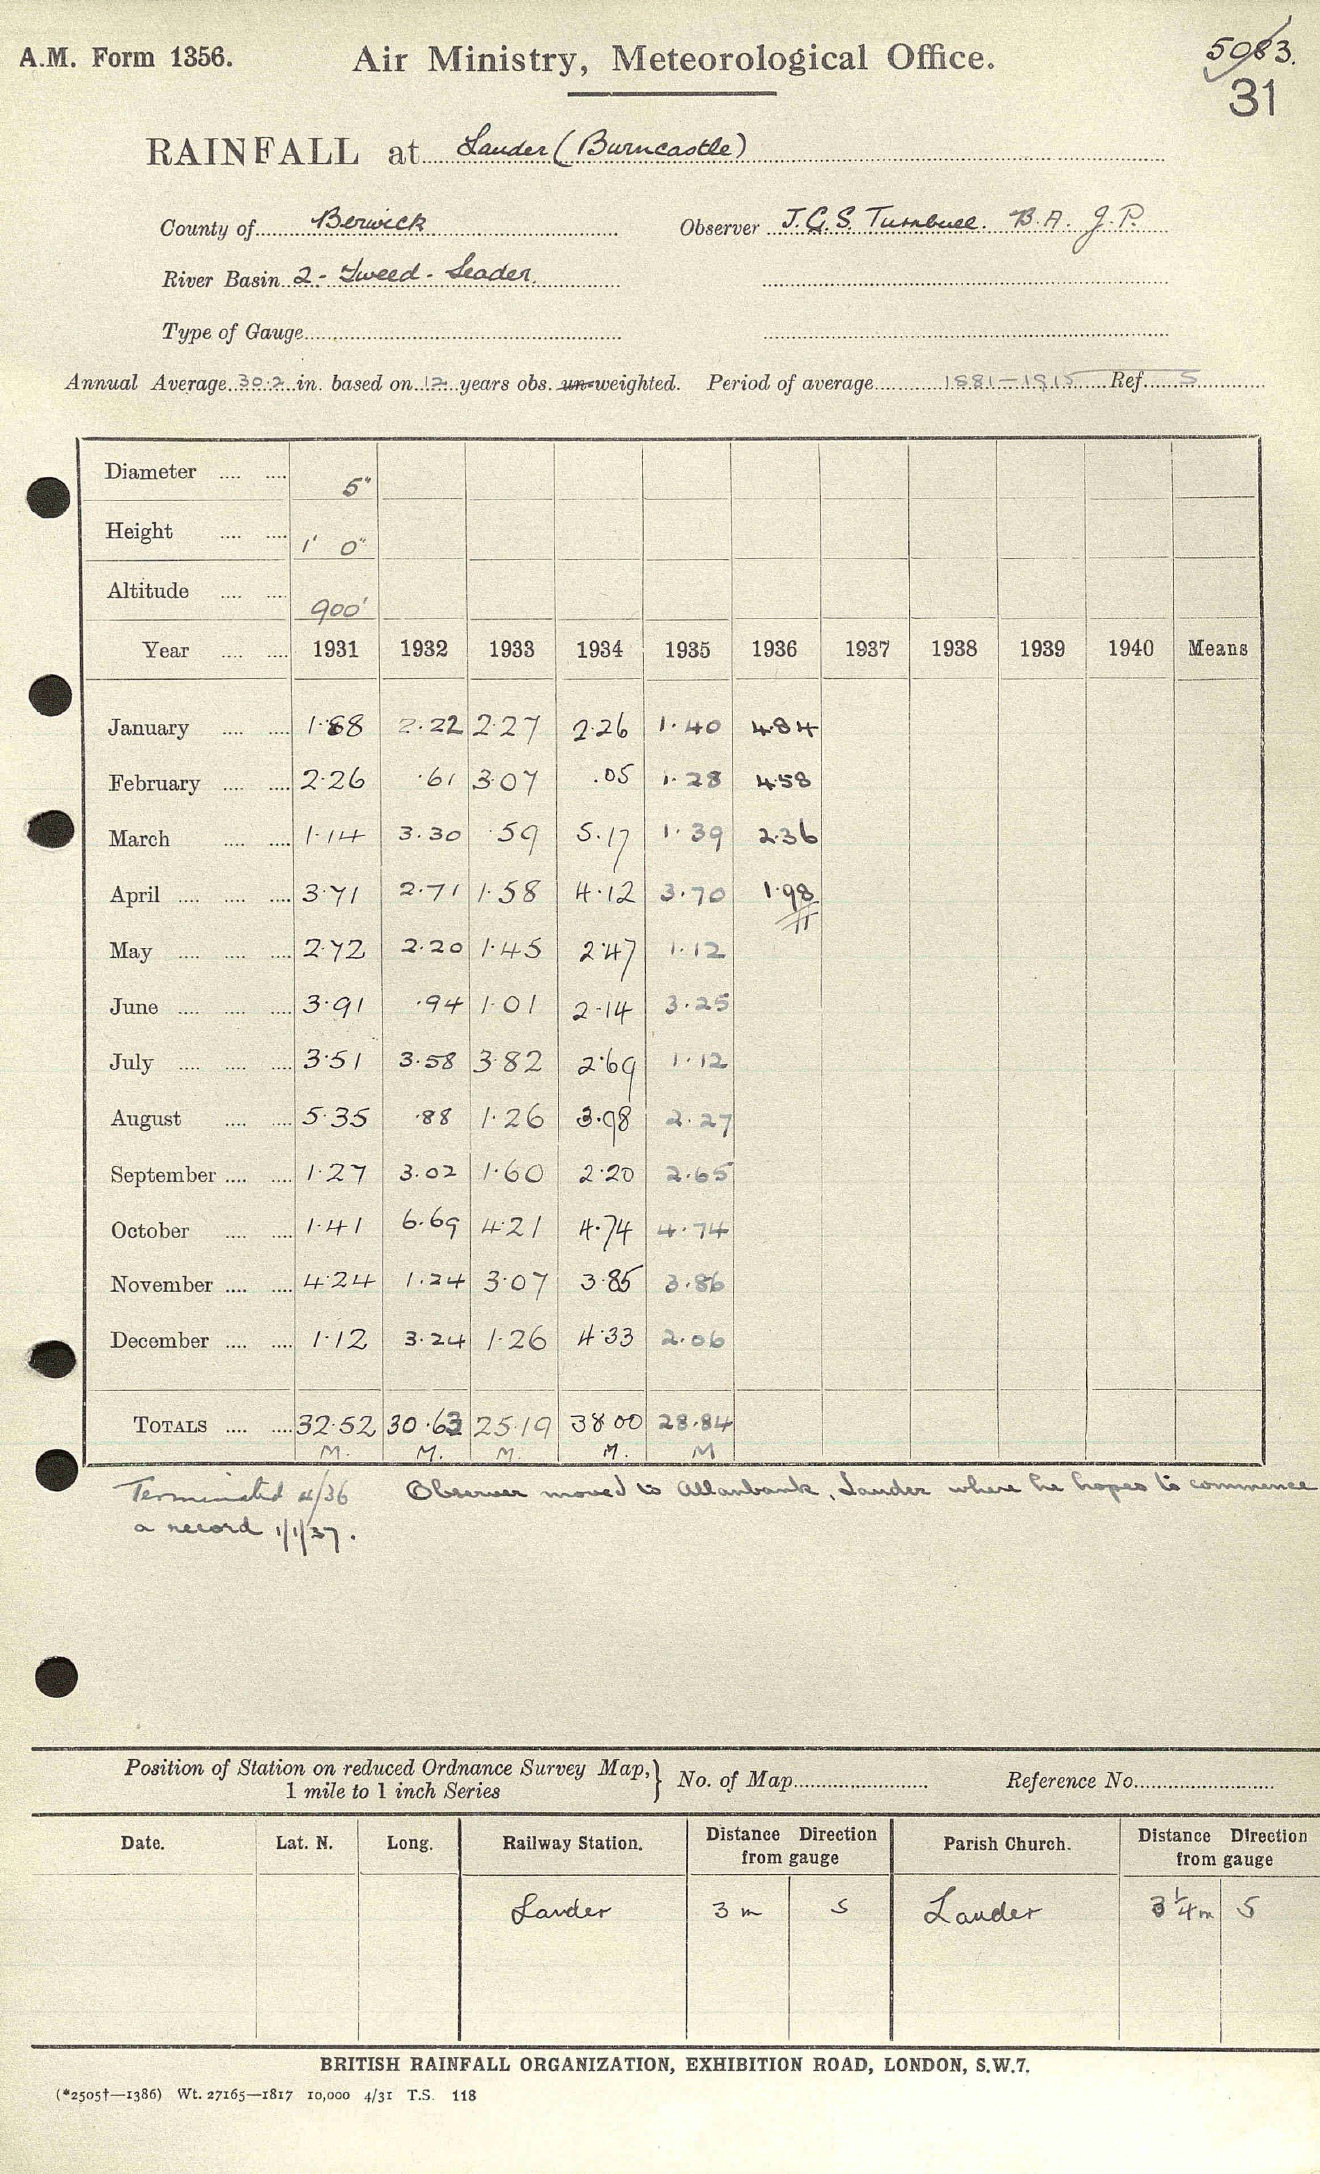 A.M. Form 1356.
Air Ministry, Meteorological Office.
5083.
31
RAINFALL at Lauder (Burncastle)
County of Berwick Observer J.G.S. Turnbull. B.A. J.P.
River Basin 2 - Tweed - Leader.
Type of Gauge
Annual Average 30.2 in. based on 12 years obs. un-weighted. Period of average 1881-1915 Ref. S
Diameter 5"
Height 1' 0"
Altitude 900'
Year 1931 1932 1933 1934 1935 1936 1937 1938 1939 1940 Means
January 1.88 2.22 2.27 2.26 1.40 4.84
February 2.26 .61 3.07 .05 1.28 4.58
March 1.14 3.30 .59 5.17 1.39 2.36
April 3.71 2.71 1.58 4.12 3.70 1.98
May 2.72 2.20 1.45 2.47 1.12
June 3.91 .94 1.01 2.14 3.25
July 3.51 3.58 3.82 2.69 1.12
August 5.35 .88 1.26 3.98 2.27
September 1.27 3.02 1.60 2.20 2.65
October 1.41 6.69 4.21 4.74 4.74
November 4.24 1.24 3.07 3.85 3.86
December 1.12 3.24 1.26 4.33 2.06
Totals 32.52 30.63 25.19 38.00 28.84
M. M. M. M. M
Terminated 4/36 Observer moved to Allanbank, Lauder where he hopes to commence
a record 1/1/37.
Position of Station on reduced Ordnance Survey Map, 1 mile to 1 inch Series } No. of Map Reference No.
Date. Lat. N. Long. Railway Station. Distance Direction from gauge Parish Church. Distance Direction from gauge
Lauder 3 m S Lauder 3 1/4 m S
BRITISH RAINFALL ORGANIZATION, EXHIBITION ROAD, LONDON, S.W.7.
(*2505†—1386) Wt. 27165—1817 10,000 4/31 T.S. 118